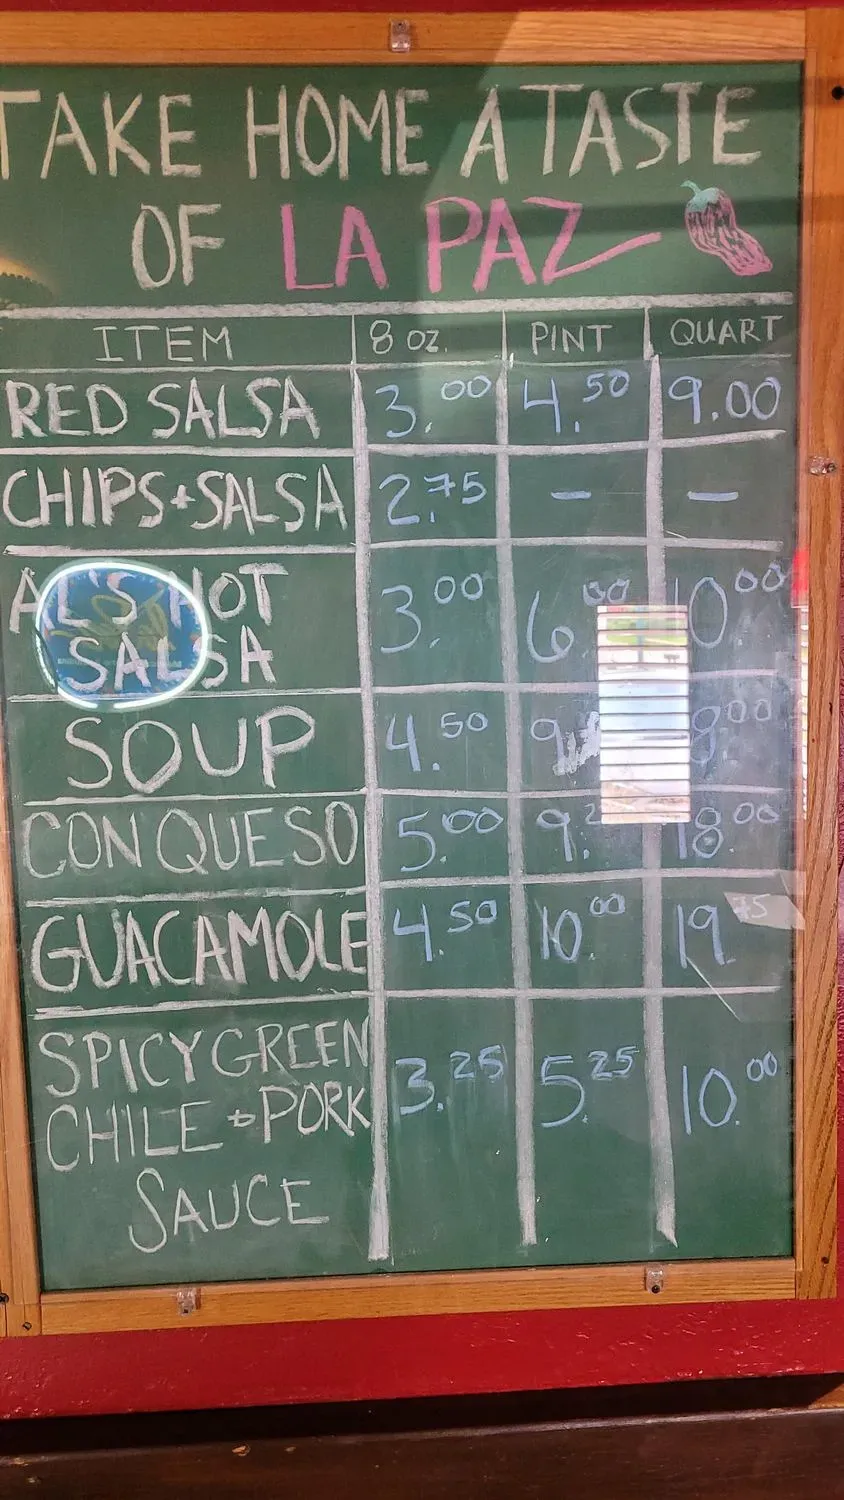 TAKE HOME A TASTE
OF LA PAZ
ITEM 8 OZ. PINT QUART
RED SALSA 3.00 4.50 9.00
CHIPS + SALSA 2.75 — —
AL'S HOT
SALSA 3.00 6.00 10.00
SOUP 4.50
CON QUESO 5.00 18.00
GUACAMOLE 4.50 10.00 19.75
SPICY GREEN
CHILE + PORK 3.25 5.25 10.00
SAUCE